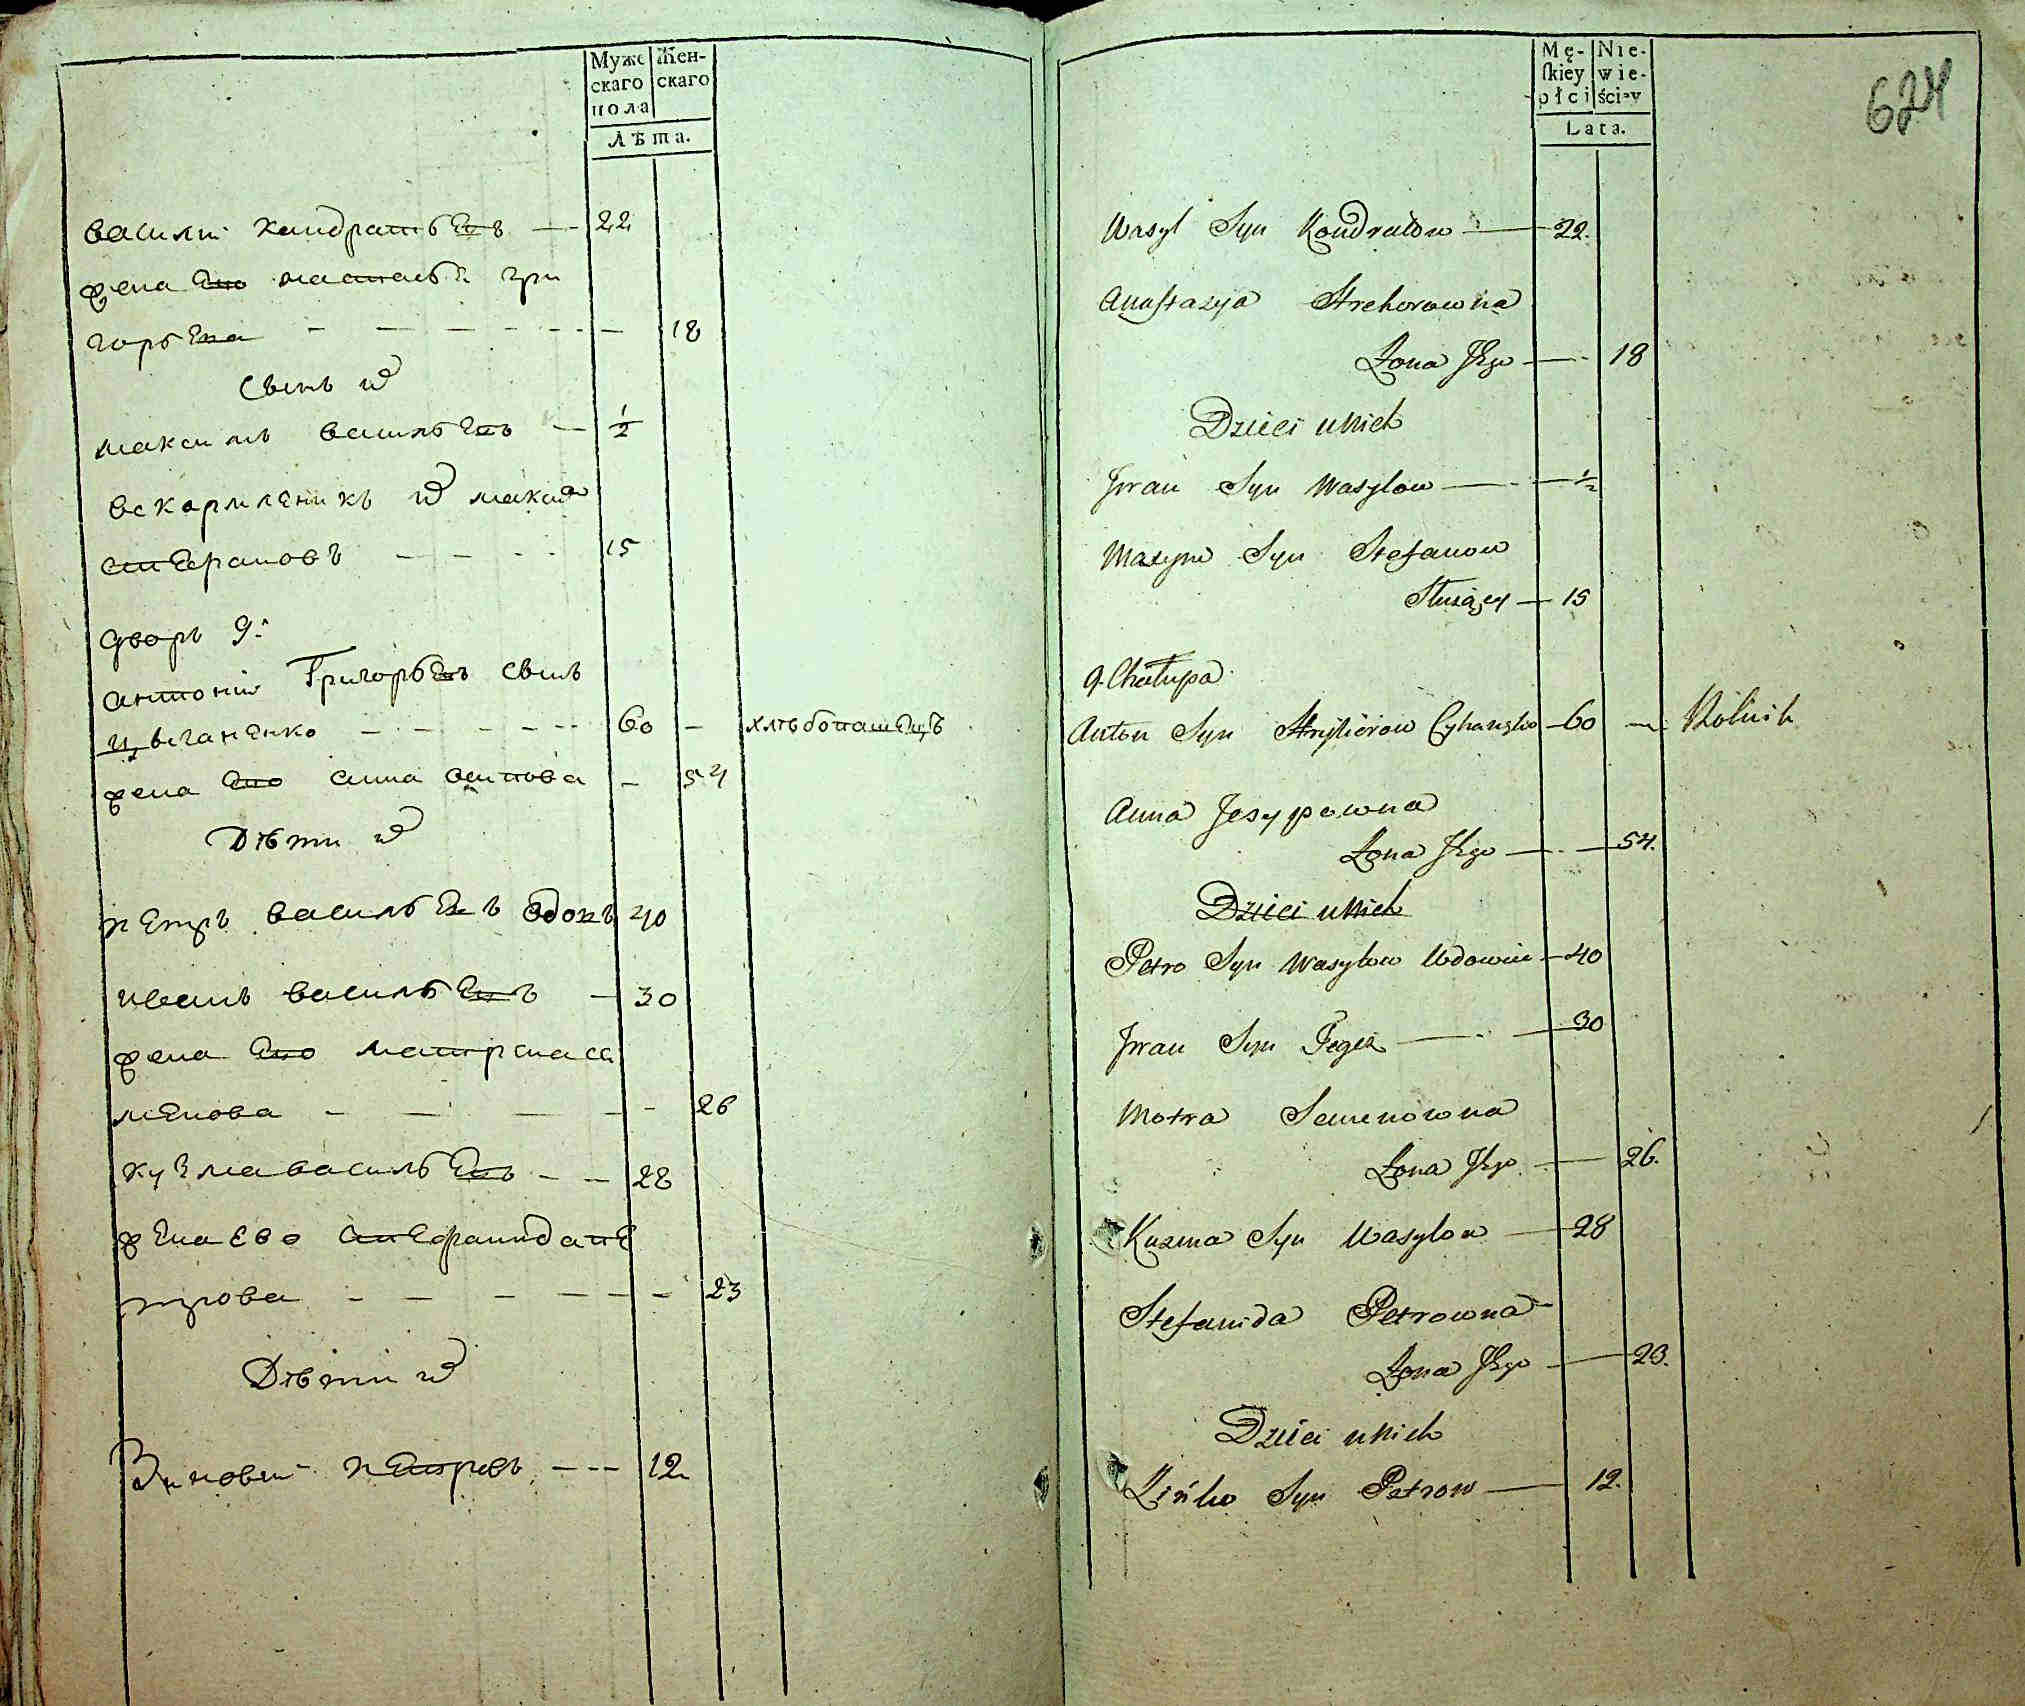 Муже
скаго
пола
Жен-
скаго
Лѣта.
василий кондратьевъ — 22
жена ево наталья гри
горьева — — — — — 18
Сынъ их
максимъ васильевъ — ½
вскормленикъ их максим
стефановъ — — — 15
дворъ 9й
антоний Григорьевъ сынъ
цыганенко — — — — — 60 — хлѣбопашецъ
жена ево анна осипова — 54
Дѣти их
петръ васильевъ вдовъ 40
иванъ васильевъ — 30
жена ево матрона се
менова — — — — — 26
кузма васильевъ — — 28
жена ево стефанида пе
трова — — — — — — 23
Дѣти их
Зиновий петровъ — — 12
Mę-
ſkiey
płci
Nie-
wie-
ściey
Lata.
624
Wasyl Syn Kondratow — 22.
Anastazya Hrehorowna
Żona Jego — 18
Dzieci u Nich
Jwan Syn Wasylow — ½
Maxym Syn Stefanow
Służący — 15
9. Chałupa
Anton Syn Hryhorow Cyhanenko — 60 — Rolnik
Anna Jesypowna
Żona Jego — 54.
Dzieci u Nich
Petro Syn Wasylow Wdowiec — 40
Jwan Syn Tegoż — 30
Motra Semenowna
Żona Jego — 26.
Kuzma Syn Wasylow — 28
Stefanida Petrowna
Żona Jego — 23.
Dzieci u Nich
Zińko Syn Petrow — 12.